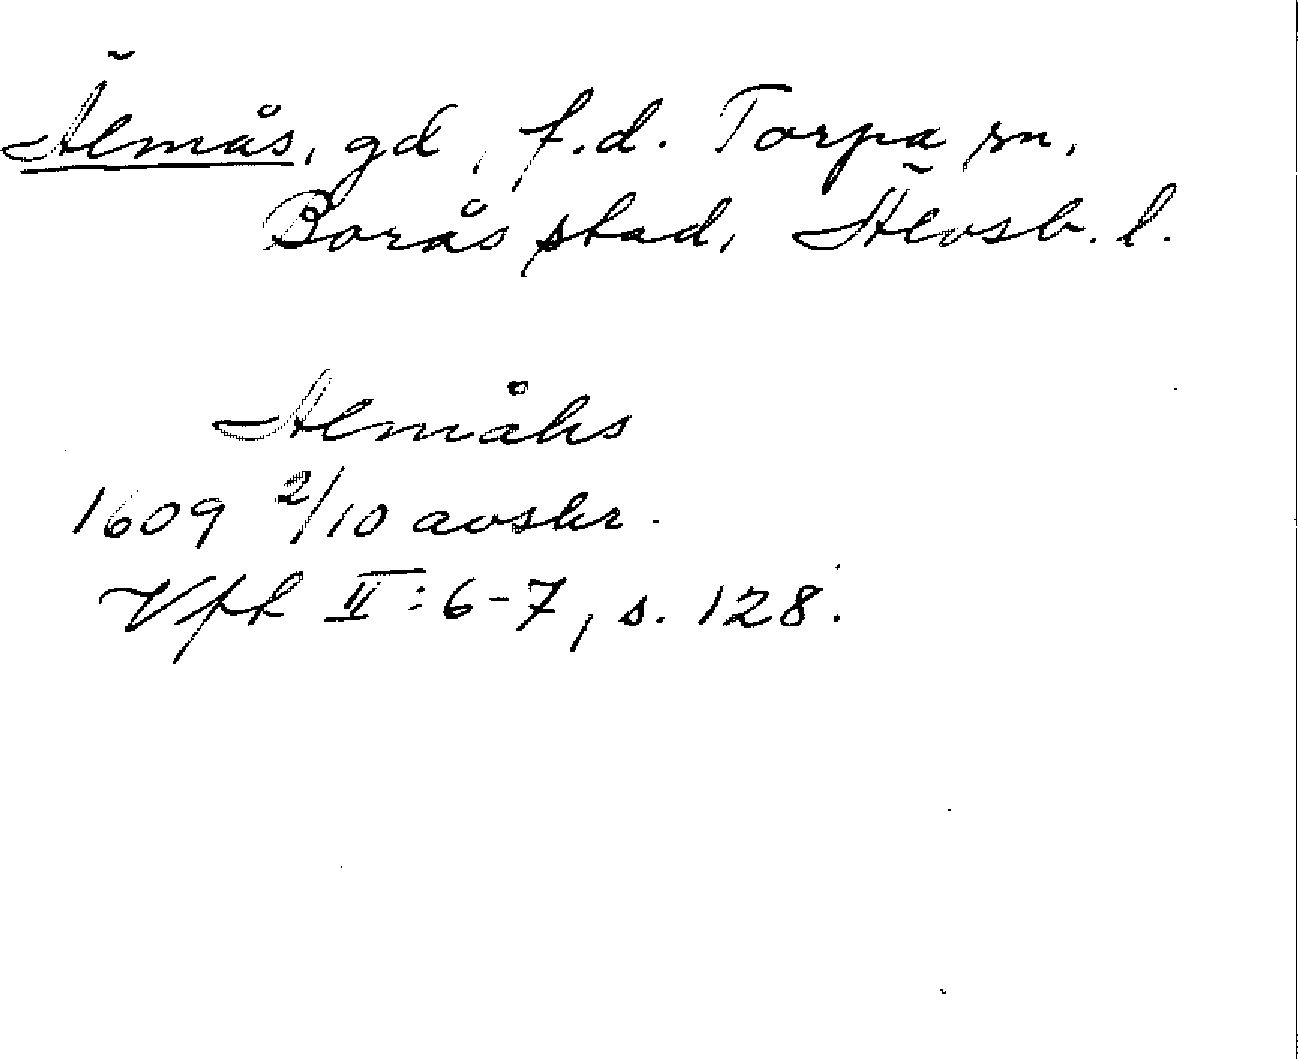 Älmås, gd, f.d. Torpa sn,
Borås stad, Älvsb. l.
Almåhs
1609 2/10 avskr.
Vfh II:6-7, s. 128.